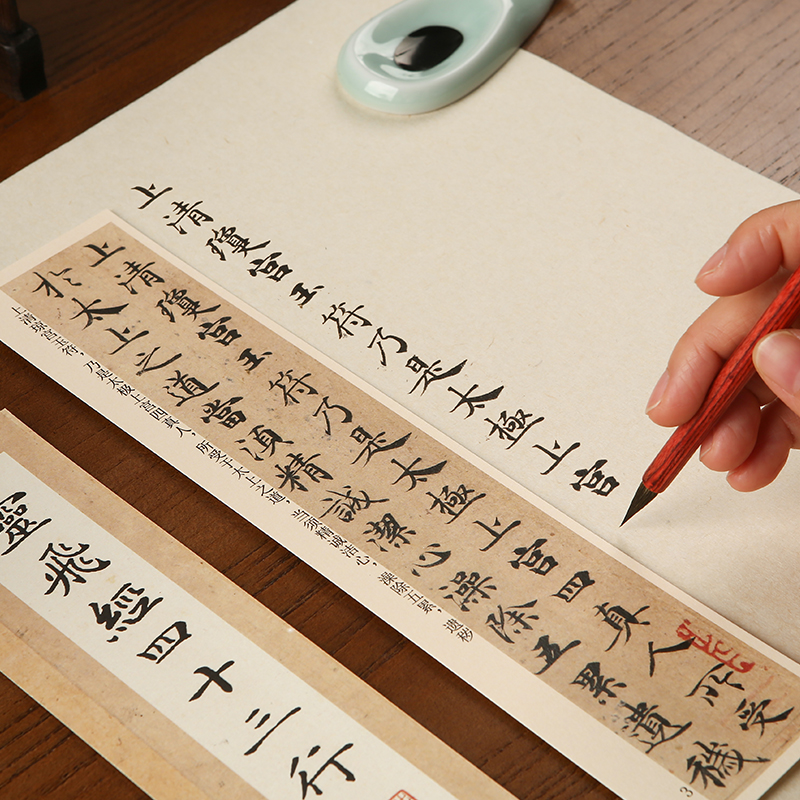 上清瓊宮玉符乃是太極上宮
上清瓊宮玉符乃是太極上宮四真人所受
於太上之道當須精誠潔心澡除五累遺穢
上清琼宫玉符，乃是太极上宫四真人，所受于太上之道，当须精诚洁心，澡除五累，遗秽
3
靈飛經四十三行